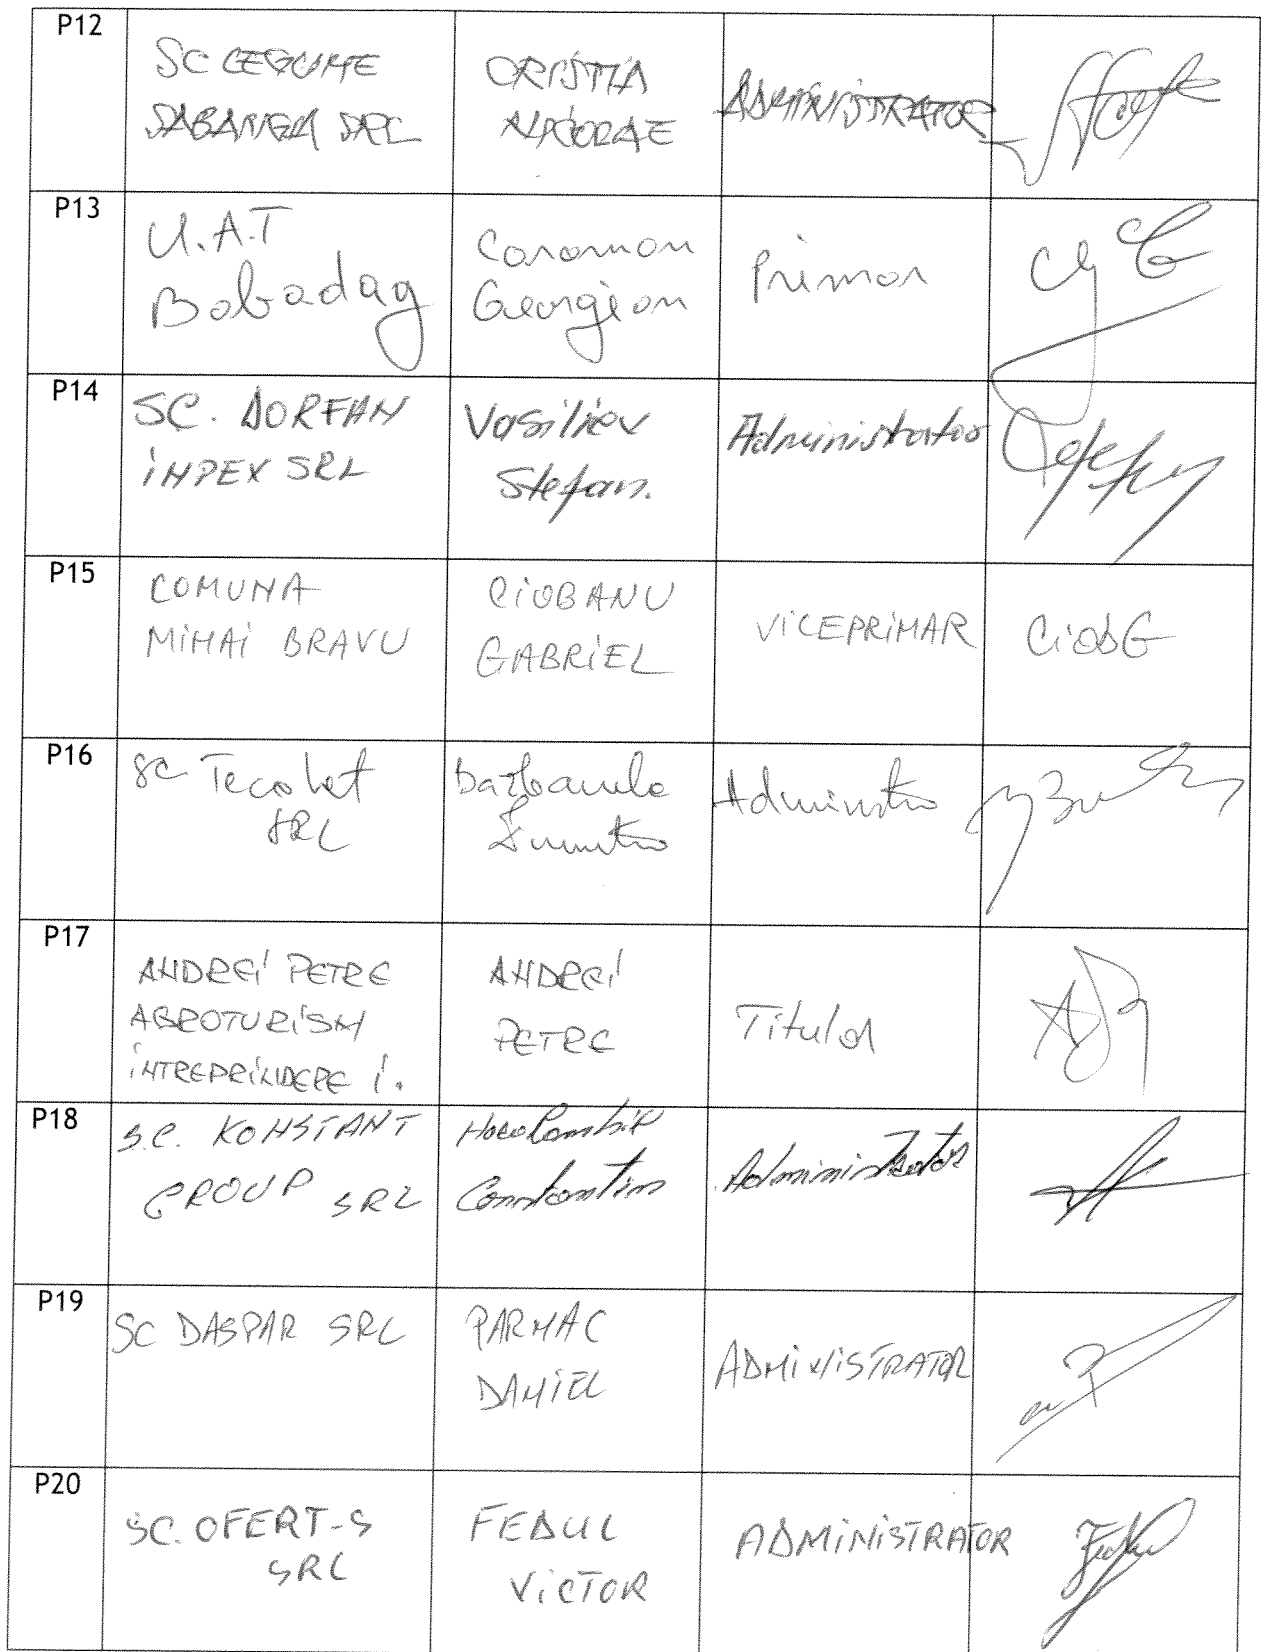 P12
SC LEGUME
SABANGIA SRL
CRISTIA
NICOLAE
ADMINISTRATOR
P13
U.A.T
Babadag
Caraman
Georgian
Primar
P14
SC. DORFAN
IMPEX SRL
Vasiliev
Stefan.
Administrator
P15
COMUNA
MIHAI BRAVU
CIOBANU
GABRIEL
VICEPRIMAR
CiobG
P16
SC
SRL
Dumitru
P17
ANDREI PETRE
AGROTURISM
INTREPRINDERE I.
ANDREI
PETRE
Titular
P18
S.C. KONSTANT
GROUP SRL
Constantin
Administrator
P19
SC DASPAR SRL
PARMAC
DANIEL
ADMINISTRATOR
P20
SC. OFERT-S
SRL
FEDUL
VICTOR
ADMINISTRATOR